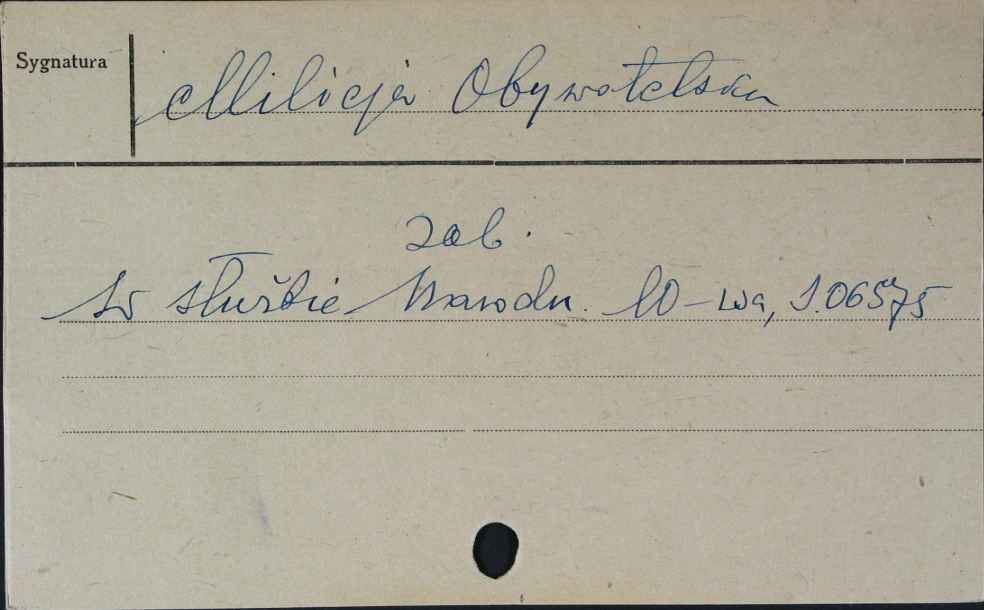 Sygnatura
Milicja Obywatelska
zob.
W służbie Narodu. W-wa, S.06575